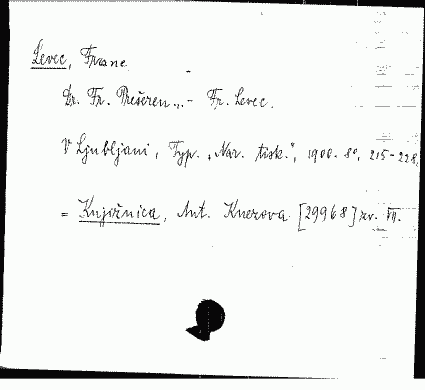 Levec, Frane
Dr. Fr. Prešeren. - Fr. Levec.
V Ljubljani, Typ. „Nar. tisk.", 1900. 8°, 215-228.
= Knjižnica, Ant. Knezova [29968] zv. VII.